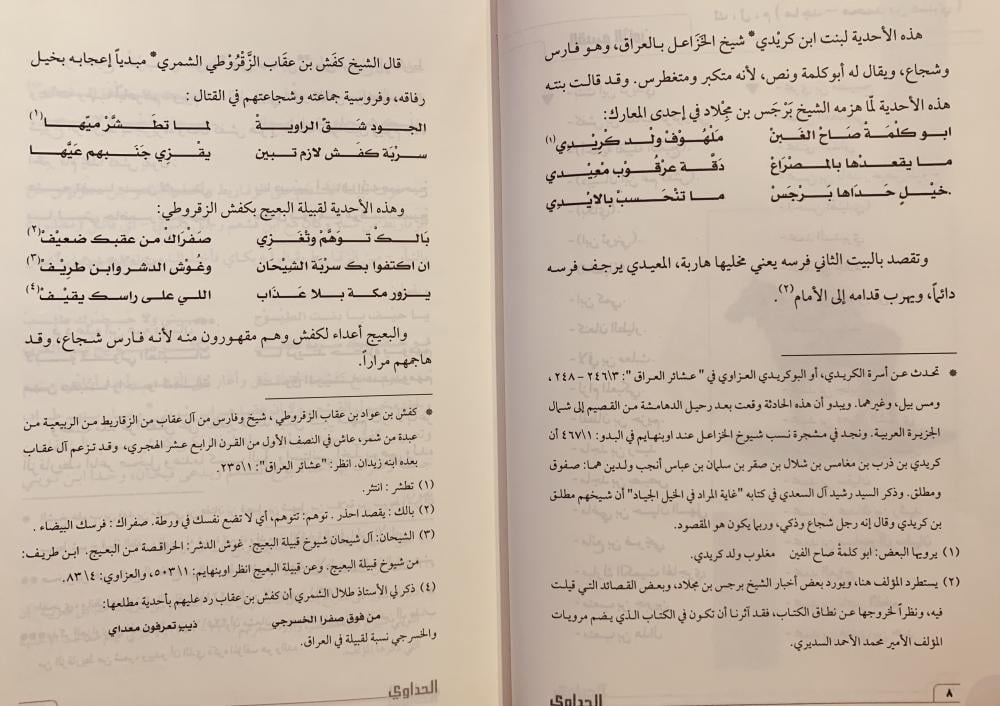 هذه الأحدية لبنت ابن كريْدي* شيخ الخَزَاعل بالعراق، وهو فارس
وشجاع، ويقال له أبوكلمة ونص، لأنه متكبر ومتغطرس. وقد قالت بنته
هذه الأحدية لمّا هزمه الشيخ بَرْجَس بن مِجْلاد في إحدى المعارك:
ابو كلْمَةْ صَاحْ الغَبنْ مَلْهُوْفْ ولد كْرِيْدِي (١)
ما يقعدْها بالمصْرَاعْ دَقّة عرْقُوْب مْعِيْدي
خيْلٍ حَدَاها بَرْجَسْ ما تنْحَسبْ بالايْدي.
وتقصد بالبيت الثاني فرسه يعني مخليها هاربة، المعيدي يرجف فرسه
دائماً، ويهرب قدامه إلى الأمام(٢).
* تحدث عن أسرة الكريدي، أو البوكريدي العزاوي في "عشائر العراق": ٣\٢٤٦ – ٢٤٨،
ومس بيل، وغيرهما. ويبدو أن هذه الحادثة وقعت بعد رحيل الدهامشة من القصيم إلى شمال
الجزيرة العربية. ونجد في مشجرة نسب شيوخ الخزاعل عند اوبنهايم في البدو: ١\٤٦٧ أن
كريدي بن ذرب بن مغامس بن شلال بن صقر بن سلمان بن عباس أنجب ولدين هما: صفوق
ومطلق. وذكر السيد رشيد آل السعدي في كتابه "غاية المراد في الخيل الجياد" أن شيخهم مطلق
بن كريدي وقال إنه رجل شجاع وذكي، وربما يكون هو المقصود.
(١) يرويها البعض: ابو كلمة صاح الغبن مغلوب ولد كريدي.
(٢) يستطرد المؤلف هنا، ويورد بعض أخبار الشيخ برجس بن مجلاد، وبعض القصائد التي قيلت
فيه، ونظراً لخروجها عن نطاق الكتاب، فقد آثرنا أن تكون في الكتاب الذي يضم مرويات
المؤلف الأمير محمد الأحمد السديري.
٨
الحداوي
قال الشيخ كفَش بن عقَاب الزَّقْرُوْطي الشمري* مبدياً إعجابه بخيل
رفاقه، وفروسية جماعته وشجاعتهم في القتال:
الجود شَقّ الراويةْ لما تطَشَّرْ ميّها(١)
سرْبَة كفَش لازم تبين يقْزي جَنَبهم عَيَّها
وهذه الأحدية لقبيلة البعيج بكفش الزقروطي:
بَالكْ تَوَهَّمْ وتْغَزي صَفْرَاكْ من عقبك ضعيْفْ(٢)
ان اكتفوا بك سربْة الشيْحَان وغُوْش الدشر وابن طريْفْ(٣)
يزور مكة بلا عَذَاب اللي على راسك يقيْفْ(٤)
والبعيج أعداء لكفش وهم مقهورون منه لأنه فارس شجاع، وقد
هاجمهم مراراً.
* كفش بن عواد بن عقاب الزقروطي، شيخ وفارس من آل عقاب من الزقاريط من الربيعية من
عبدة من شمر، عاش في النصف الأول من القرن الرابع عشر الهجري، وقد تزعم آل عقاب
بعده ابنه زيدان. انظر: "عشائر العراق": ١\٢٣٥.
(١) تطشر: انتثر.
(٢) بالك: يقصد احذر. توهم: تتوهم، أي لا تضع نفسك في ورطة. صفراك: فرسك البيضاء.
(٣) الشيحان: آل شيحان شيوخ قبيلة البعيج. غوش الدشر: الحراقصة من البعيج. ابن طريف:
من شيوخ قبيلة البعيج. وعن قبيلة البعيج انظر اوبنهايم: ١\٥٠٣، والعزاوي: ٤\٨٣.
(٤) ذكر لي الأستاذ طلال الشمري أن كفش بن عقاب رد عليهم بأحدية مطلعها:
من فوق صفرا الخسرجي ذيب تعرفون معداي
والخسرجي نسبة لقبيلة في العراق.
الحداوي